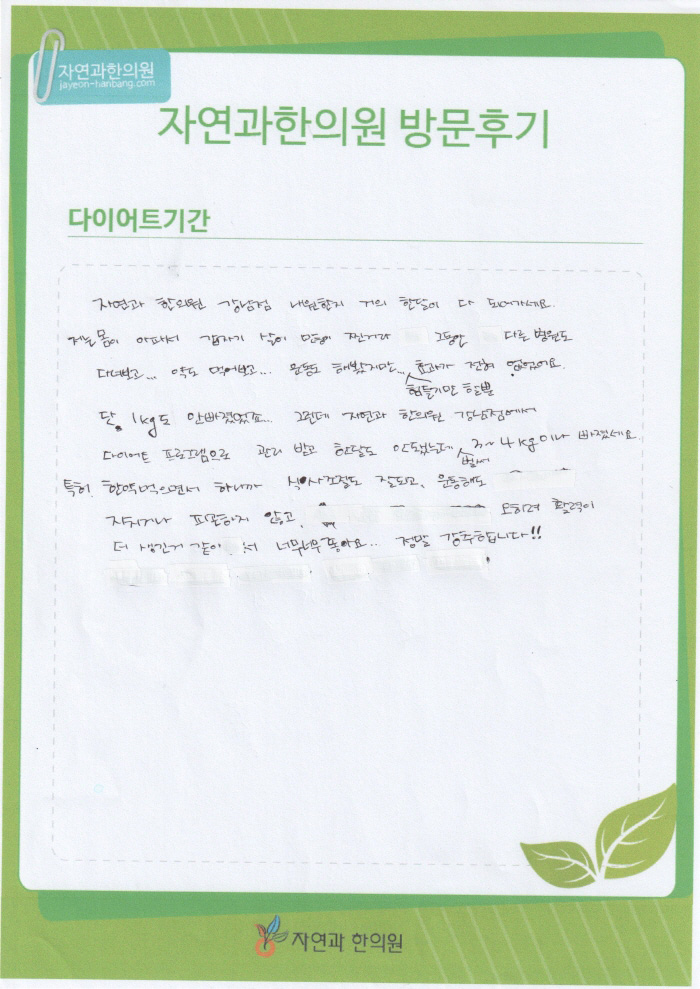 자연과한의원
jayeon-hanbang.com
자연과한의원 방문후기
다이어트기간
자연과 한의원 강남점 내원한지 거의 한달이 다 되어가네요.
저는 몸이 아파서 갑자기 살이 많이 찐거라 그동안 다른 병원도
다녀보고... 약도 먹어보고... 운동도 해봤지만... 효과가 전혀 없었어요.
힘들기만 할뿐
단, 1kg도 안빠졌었죠... 그런데 자연과 한의원 강남점에서
다이어트 프로그램으로 관리 받고 한달도 안됐는데 3~4kg이나 빠졌네요.
벌써
특히, 한약먹으면서 하니까 식사조절도 잘되고, 운동해도
지치거나 피곤하지 않고, 오히려 활력이
더 생긴거 같이 너무너무 좋아요.. 정말 강추합니다!!
자연과 한의원